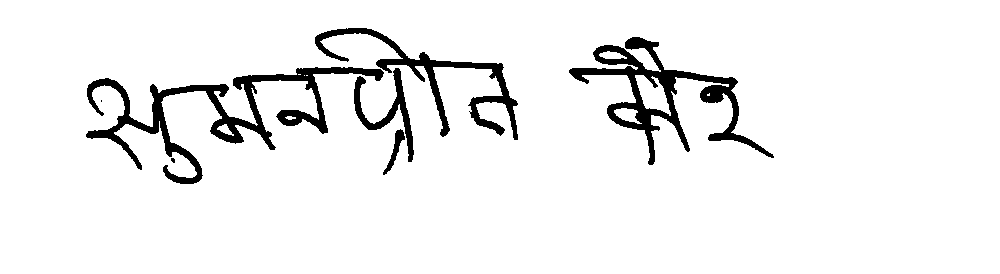 सुमनप्रीत कौर